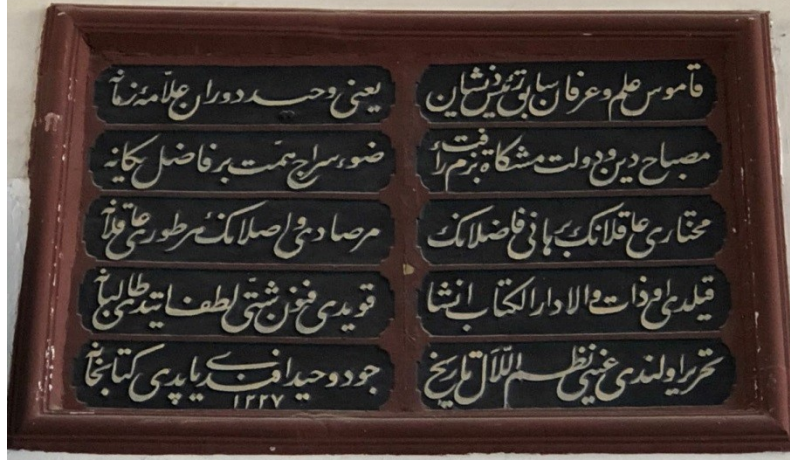 قاموس علم و عرفان سابق رئیس ذیشان
یعنی وحید دوران علامۀ زمانه
مصباح دین و دولت مشكاة بزم رأفت
ضوء سراج همّت بر فاضل یكانه
مختاری عاقلانك برهانی فاضلانك
مرصادی واصلانك هر طوری عاقلانه
قیلدی او ذات والا دار الكتاب انشا
قویدی فنون شتّی لطف ایتدی طالبانه
تحریر اولندی عینی نظم اللآل تاریخ
جود وحید افندی یاپدی كتابخانه
١٢٢٧